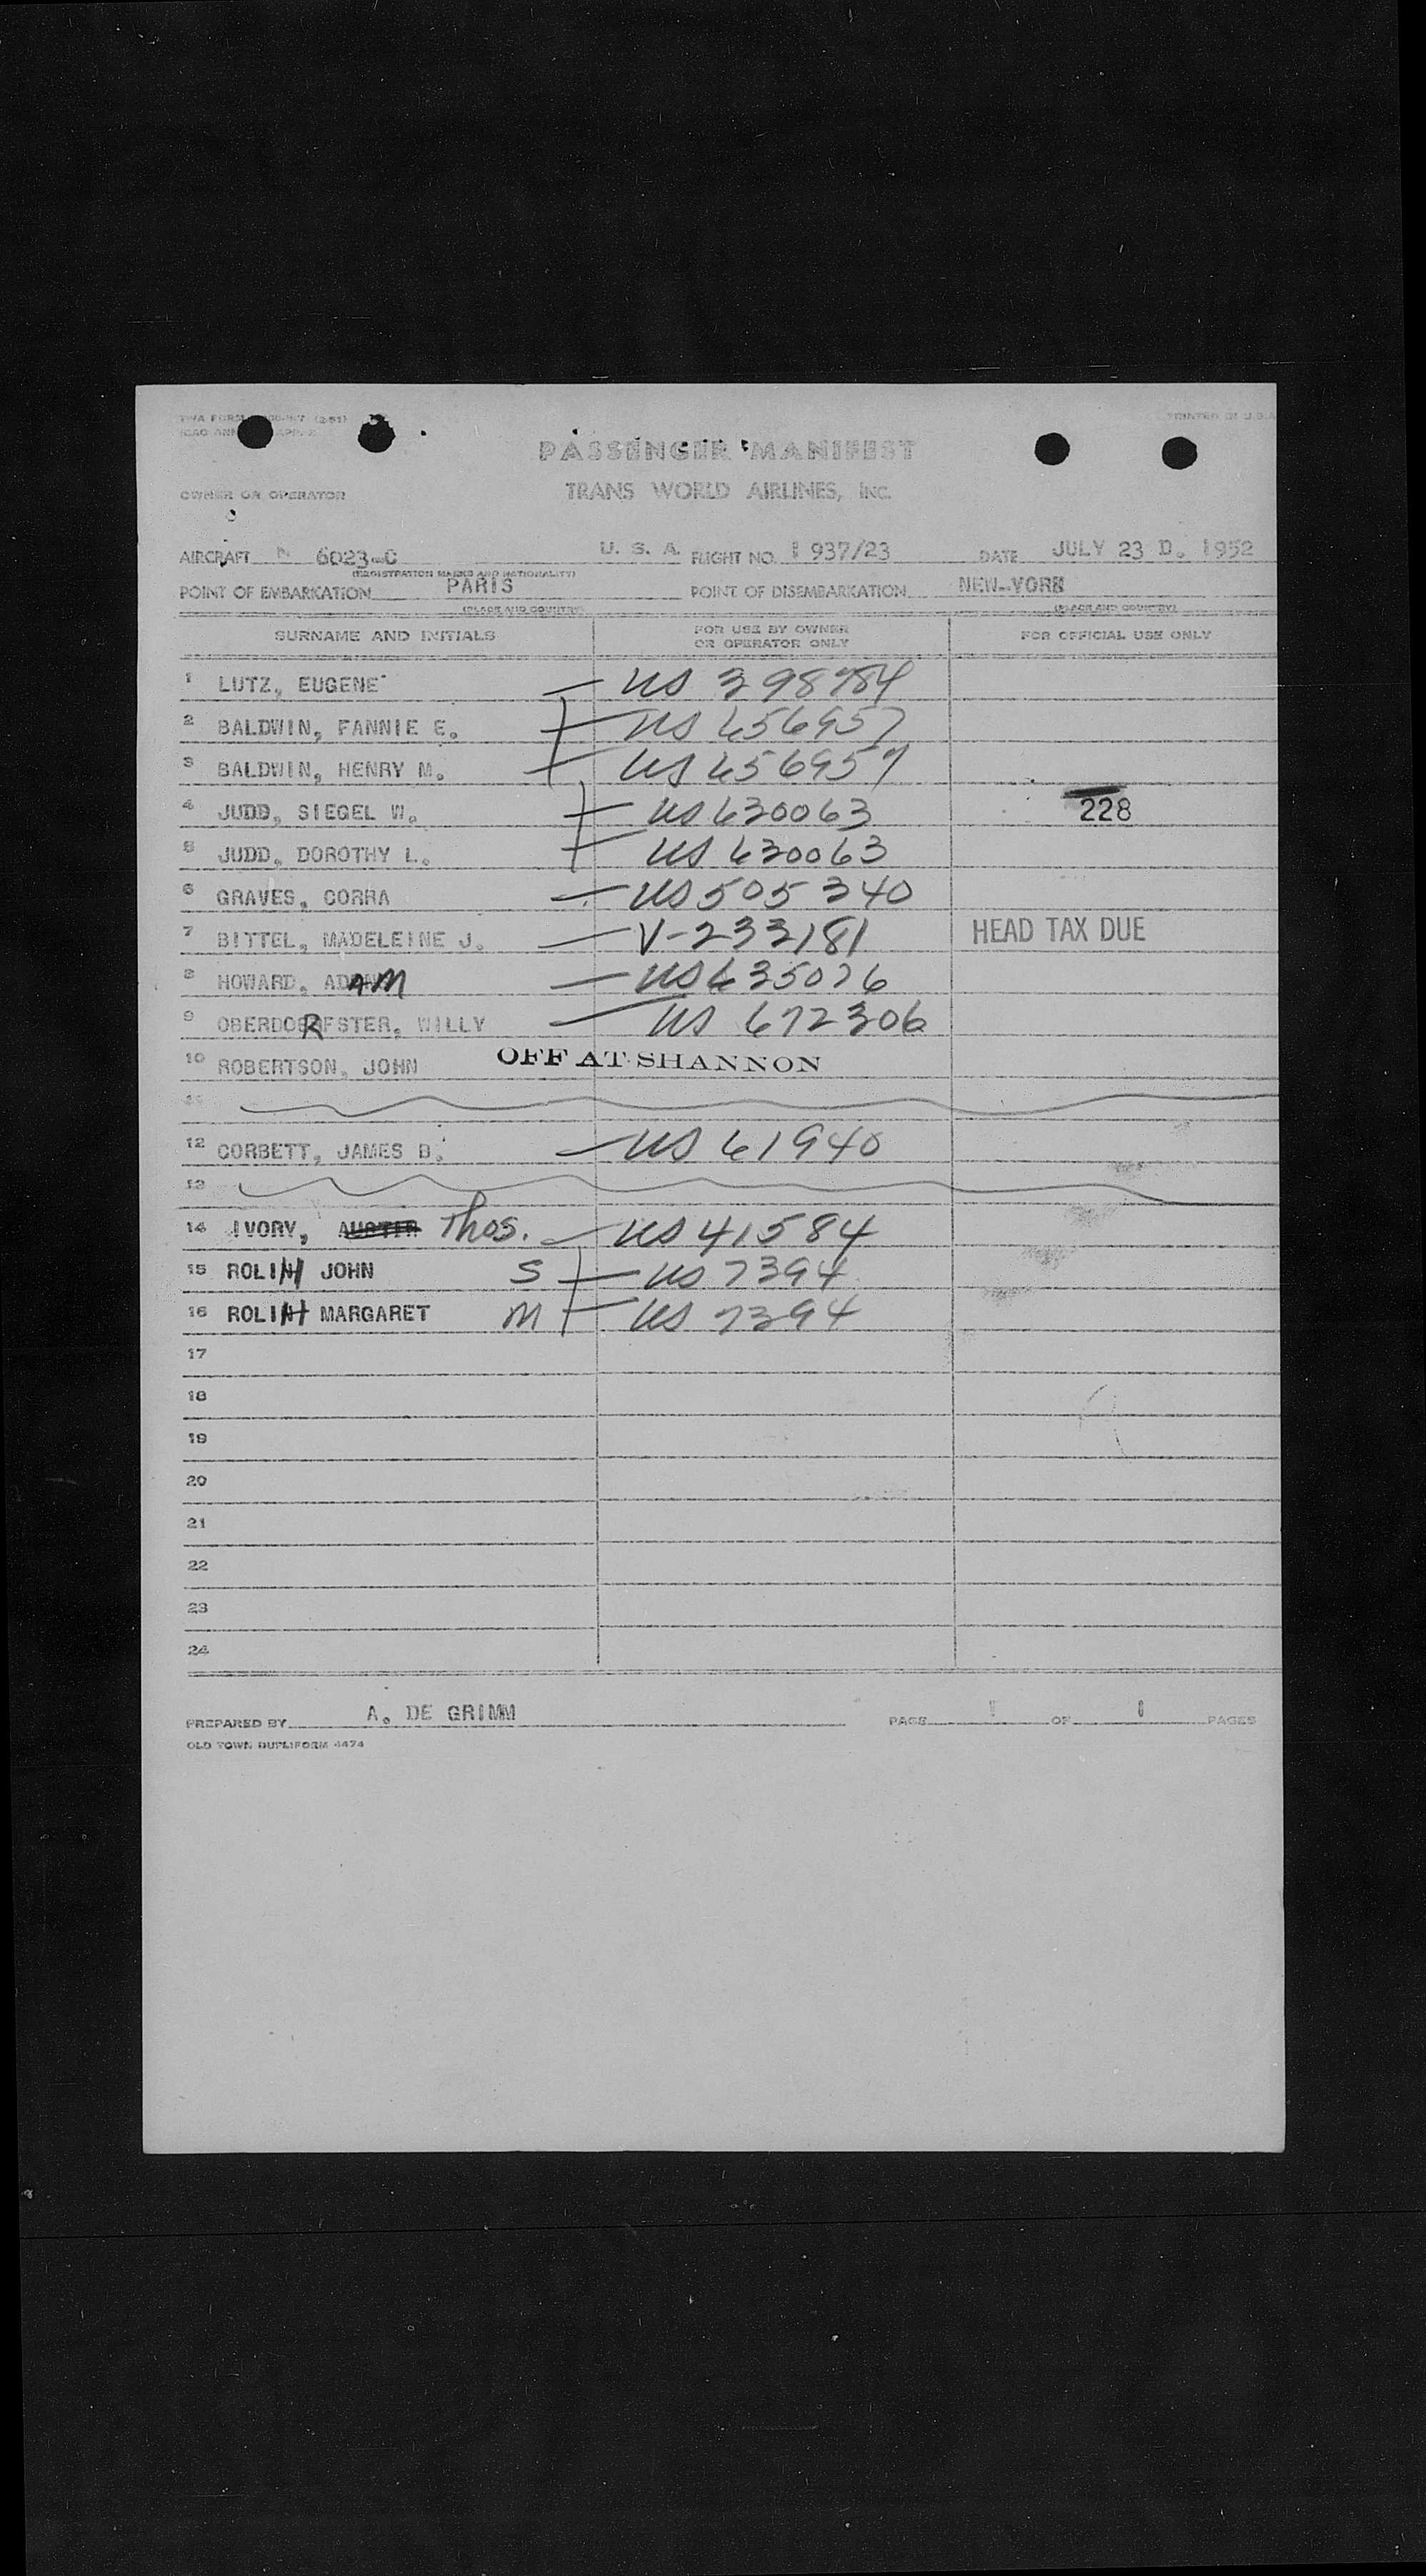 PRINTED IN U.S.A.
PASSENGER MANIFEST
TRANS WORLD AIRLINES, INC.
OWNER OR OPERATOR
AIRCRAFT N 6023-C U. S. A. FLIGHT NO. 937/23 DATE JULY 23 D. 1952
(REGISTRATION MARKS AND NATIONALITY)
POINT OF EMBARKATION PARIS POINT OF DISEMBARKATION NEW-YORK
(PLACE AND COUNTRY) (PLACE AND COUNTRY)
SURNAME AND INITIALS FOR USE BY OWNER OR OPERATOR ONLY FOR OFFICIAL USE ONLY
1 LUTZ, EUGENE US 398784
2 BALDWIN, FANNIE E. US 656957
3 BALDWIN, HENRY M. US 656957
4 JUDD, SIEGEL W. US 630063 228
5 JUDD, DOROTHY L. US 630063
6 GRAVES, CORRA US 505340
7 BITTEL, MADELEINE J. V-233181 HEAD TAX DUE
8 HOWARD, ADAM US 635076
9 OBERDOERFSTER, WILLY US 672306
10 ROBERTSON, JOHN OFF AT SHANNON
11
12 CORBETT, JAMES B. US 61940
13
14 IVORY, Thos. US 41584
15 ROLIH JOHN S US 7394
16 ROLIH MARGARET M US 7394
17
18
19
20
21
22
23
24
PREPARED BY A. DE GRIMM PAGE 1 OF 1 PAGES
OLD TOWN DUPLIFORM 4474